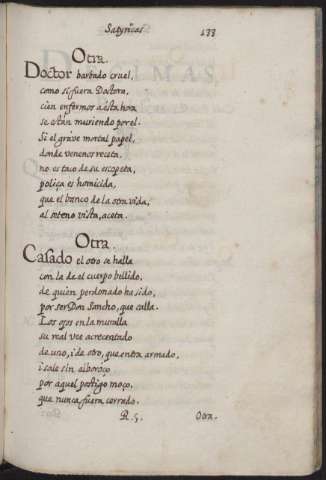 Satyricas 133
Otra.
Doctor barbado cruel,
como si fuera Doctora,
cien enfermos a esta hora
se están muriendo por el.
Si el grave mortal papel,
donde venenos receta
no es taco de su escopeta,
poliça es homicida,
que el banco de la otra vida,
al seteno vista, aceta.
Otra.
Casado el otro se halla
con la de el cuerpo bellido,
de quien perdonado ha sido,
por ser Don Sancho, que calla.
Los ojos en la muralla
su real vee acrecentado
de uno, i de otro, que entra armado,
i sale sin alboroço
por aquel postigo moço,
que nunca fuera cerrado.
R. 5. Otra.